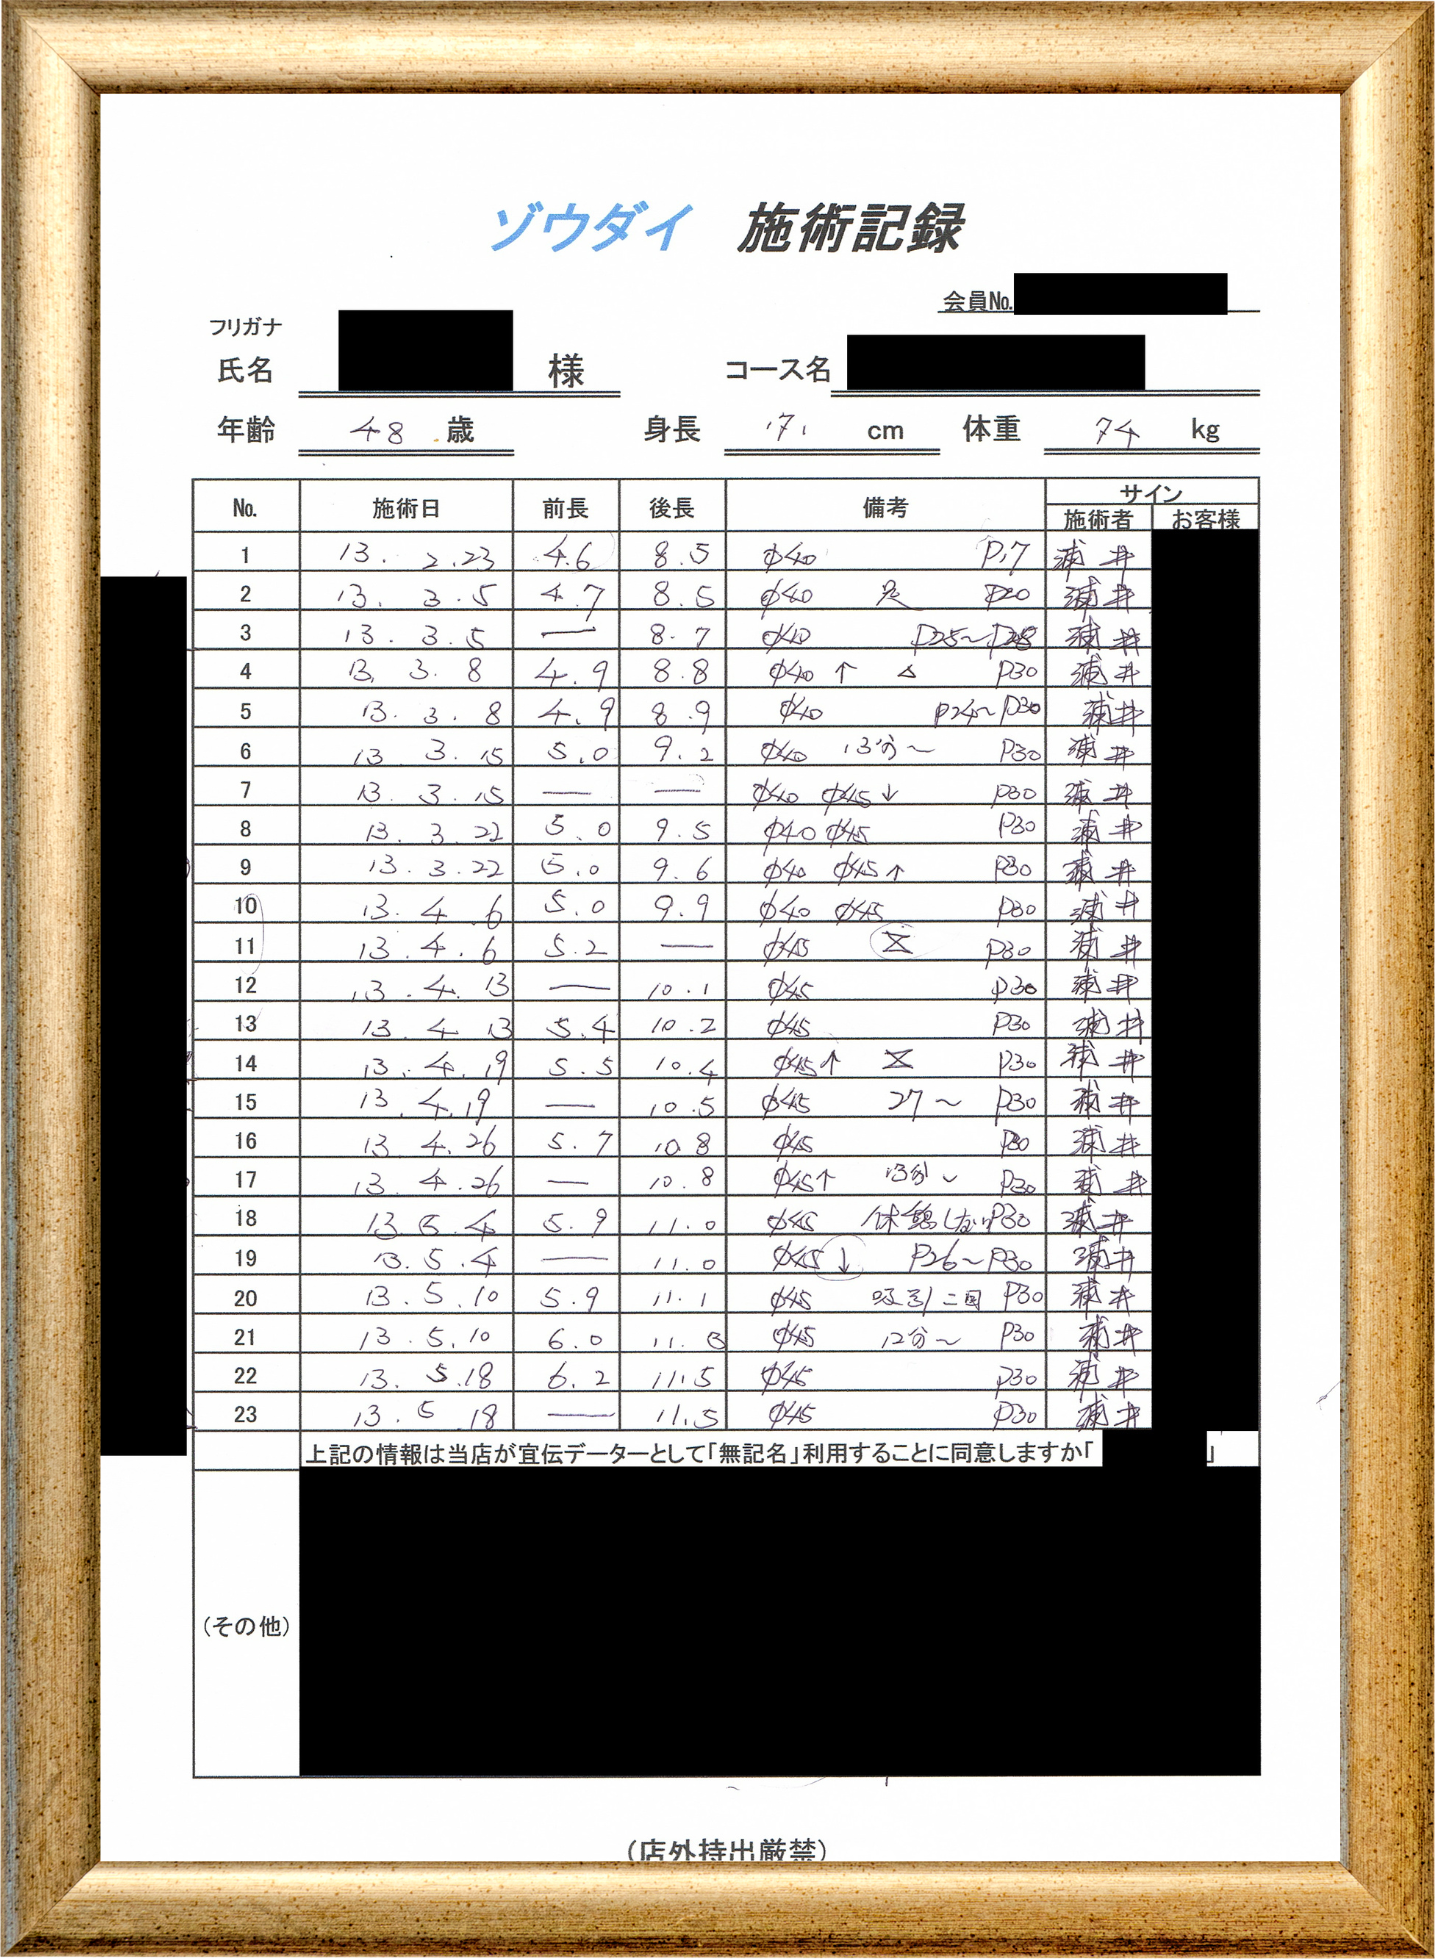 ゾウダイ 施術記録
会員No.
フリガナ
氏名 様 コース名
年齢 48 歳 身長 171 cm 体重 74 kg
No. 施術日 前長 後長 備考 サイン
施術者 お客様
1 13. 2.23 4.6 8.5 φ40 P17 浦井
2 13. 3.5 4.7 8.5 φ40 P20 浦井
3 13. 3.5 — 8.7 φ40 P25~P28 浦井
4 13. 3.8 4.9 8.8 φ40↑ △ P30 浦井
5 13. 3.8 4.9 8.9 φ40 P24~P30 浦井
6 13 3.15 5.0 9.2 φ40 13分~ P30 浦井
7 13. 3.15 — — φ40 φ45↓ P30 浦井
8 13. 3.22 5.0 9.5 φ40 φ45 P30 浦井
9 13.3.22 5.0 9.6 φ40 φ45↑ P30 浦井
10 13.4.6 5.0 9.9 φ40 φ45 P30 浦井
11 13.4.6 5.2 — φ45 P30 浦井
12 13.4.13 — 10.1 φ45 P30 浦井
13 13.4.13 5.4 10.2 φ45 P30 浦井
14 13.4.19 5.5 10.4 φ45↑ P30 浦井
15 13.4.19 — 10.5 φ45 27~ P30 浦井
16 13.4.26 5.7 10.8 φ45 P30 浦井
17 13.4.26 — 10.8 φ45↑ 13分~ P30 浦井
18 13.5.4 5.9 11.0 φ45 休憩しない P30 浦井
19 13.5.4 — 11.0 φ45↓ P26~P30 浦井
20 13.5.10 5.9 11.1 φ45 吸引二回 P30 浦井
21 13.5.10 6.0 11.3 φ45 12分~ P30 浦井
22 13.5.18 6.2 11.5 φ45 P30 浦井
23 13.5.18 — 11.5 φ45 P30 浦井
上記の情報は当店が宣伝データーとして「無記名」利用することに同意しますか「 」
(その他)
(店外持出厳禁)